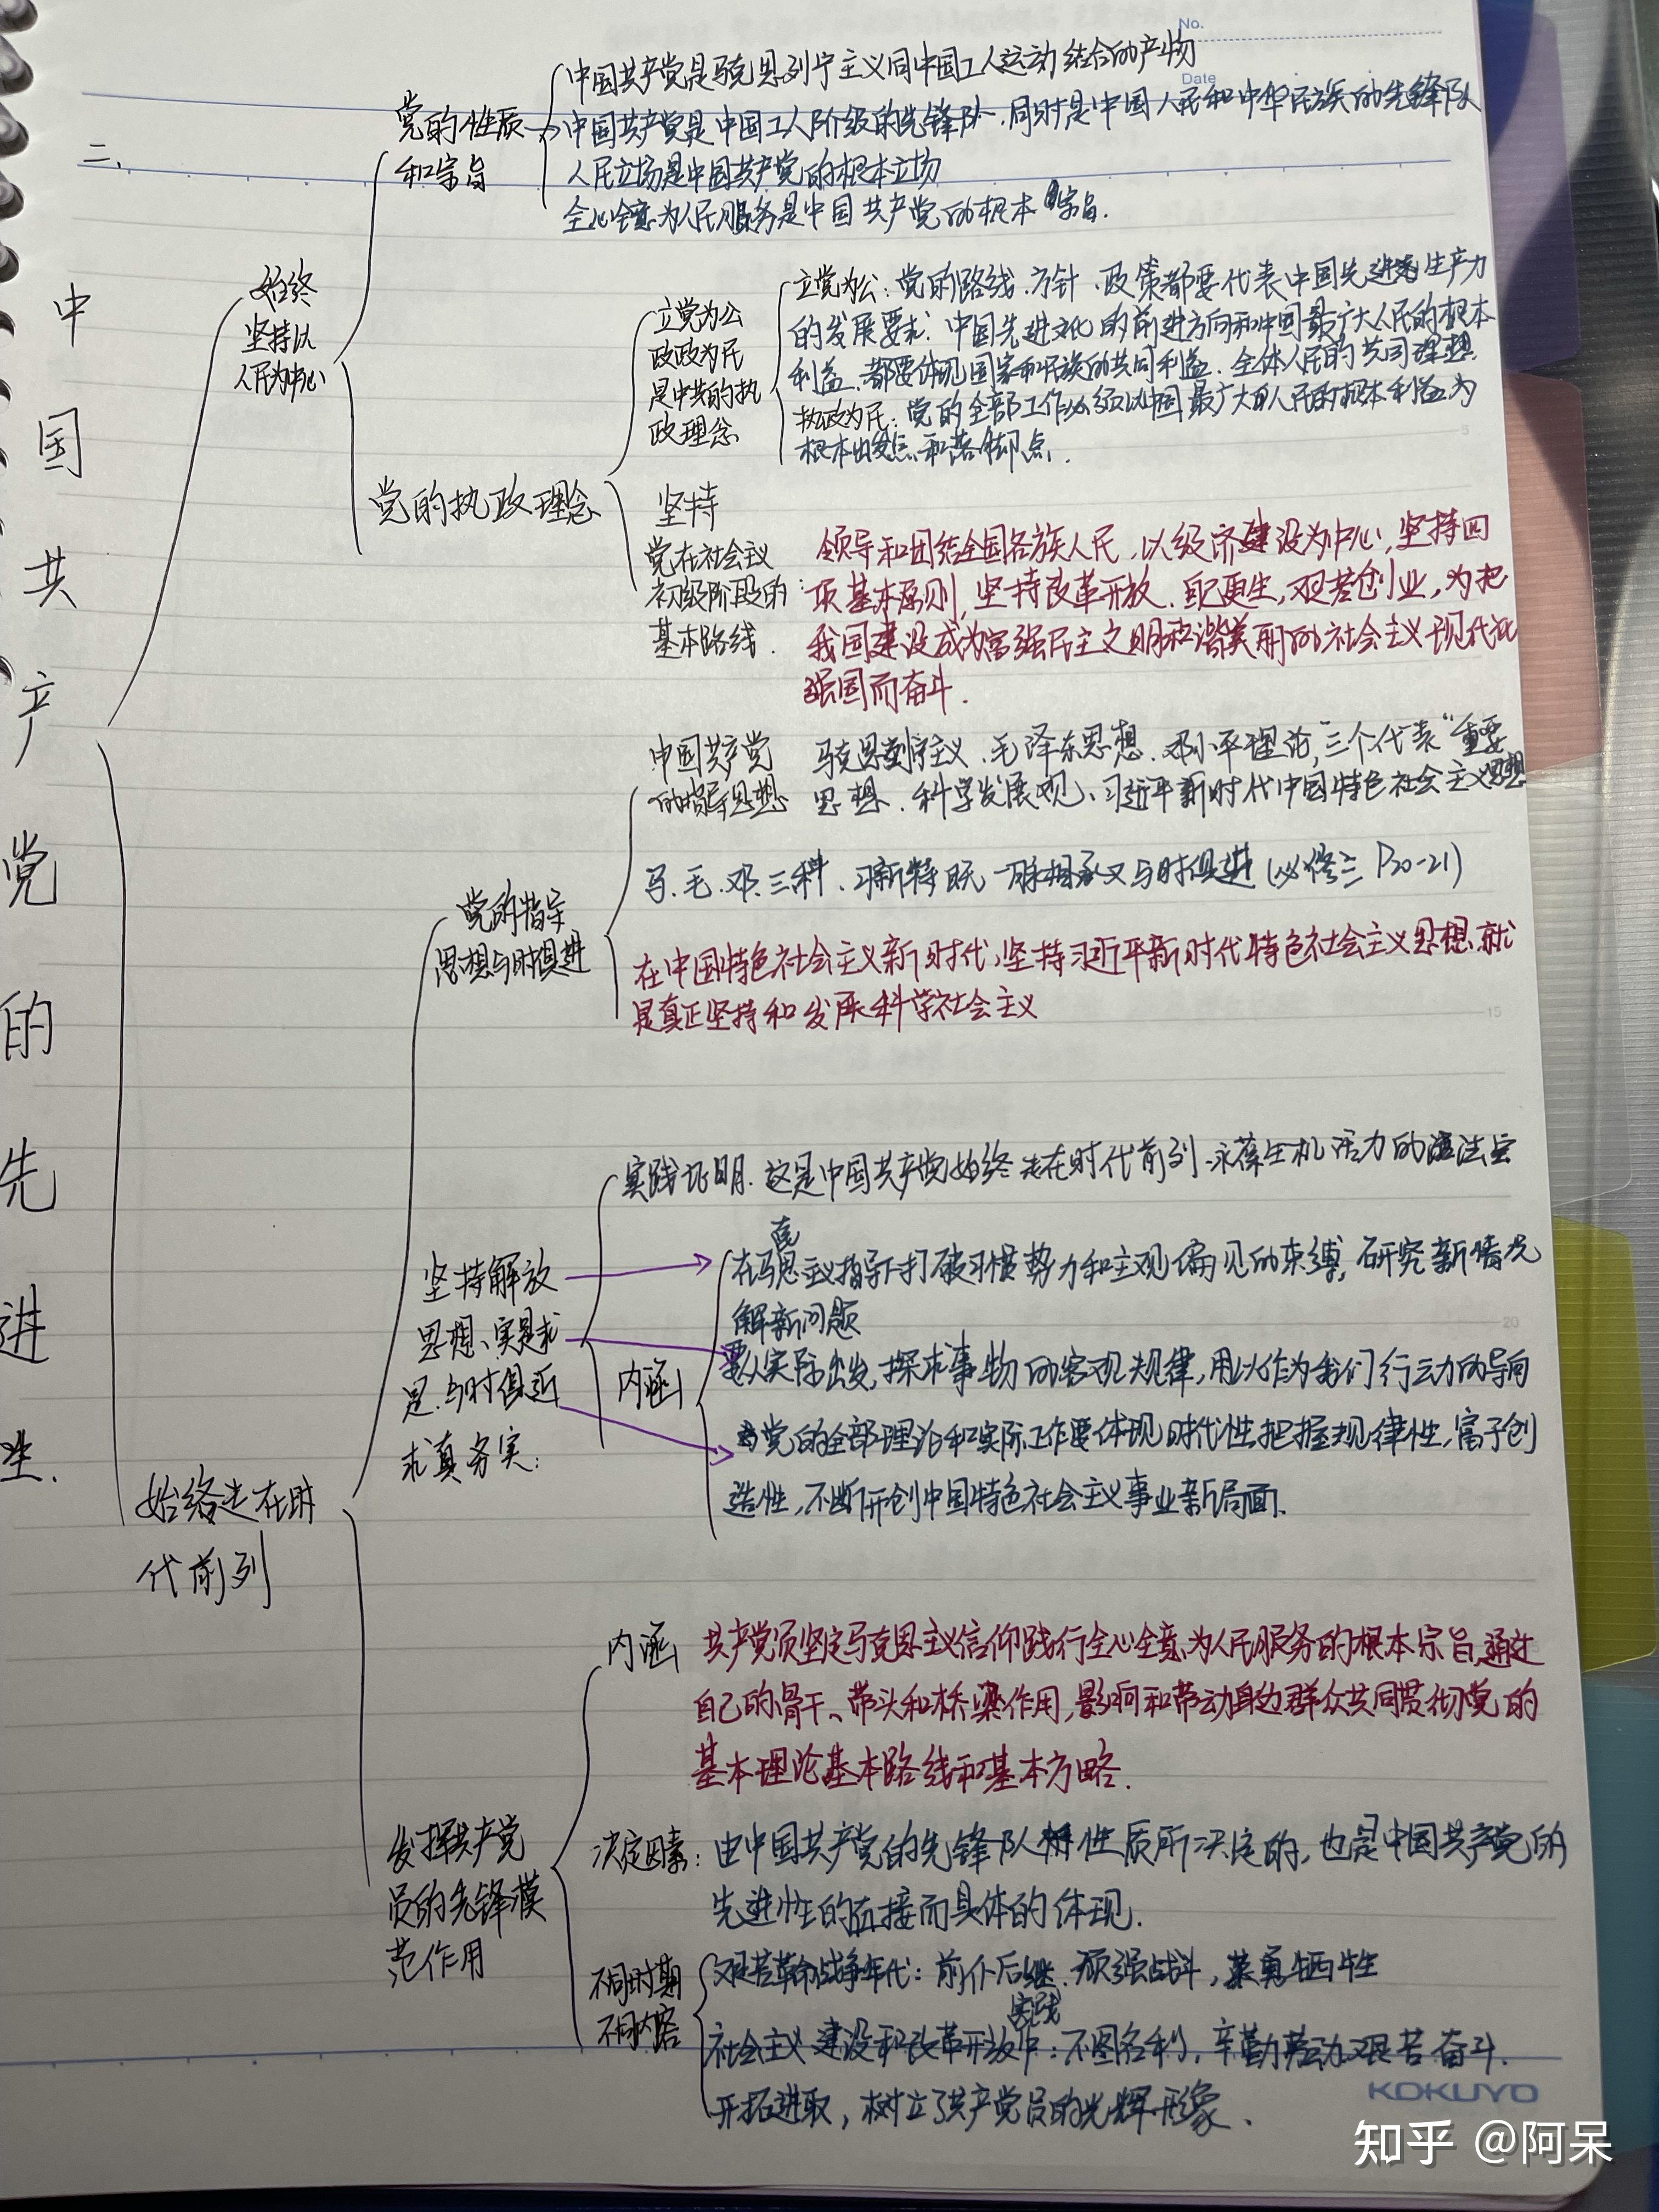 No.
Date
二、
中国共产党的先进生.
始终
坚持以
人民为中心
党的性质
和宗旨
中国共产党是马克思列宁主义同中国工人运动结合的产物
中国共产党是中国工人阶级的先锋队、同时是中国人民和中华民族的先锋队
人民立场是中国共产党的根本立场
全心全意为人民服务是中国共产党的根本宗旨.
党的执政理念
立党为公
政政为民
是中共的执
政理念
立党为公:党的路线、方针、政策都要代表中国先进生产力
的发展要求、中国先进文化的前进方向和中国最广大人民的根本
利益、都要体现国家和民族的共同利益、全体人民的共同理想.
执政为民:党的全部工作必须以中国最广大人民的根本利益为
根本出发点和落脚点.
坚持
党在社会主义
初级阶段的:
基本路线.
领导和团结全国各族人民,以经济建设为中心,坚持四
项基本原则,坚持改革开放、自力更生,艰苦创业,为把
我国建设成为富强民主文明和谐美丽的社会主义现代化
强国而奋斗.
始终走在时
代前列
党的指导
思想与时俱进
中国共产党
的指导思想
马克思列宁主义、毛泽东思想、邓小平理论,“三个代表”重要
思想、科学发展观、习近平新时代中国特色社会主义思想
马、毛、邓、三科、习新特既一脉相承又与时俱进(必修三 P20-21)
在中国特色社会主义新时代,坚持习近平新时代特色社会主义思想就
是真正坚持和发展科学社会主义
坚持解放
思想、实是求
是、与时俱近
求真务实:
实践证明、这是中国共产党始终走在时代前列、永葆生机活力的法宝
内涵
在马克思主义指导下打破习惯势力和主观偏见的束缚,研究新情况
解新问题
要从实际出发,探求事物的客观规律,用以作为我们行动的导向
党的全部理论和实际工作要体现时代性,把握规律性,富于创
造性,不断开创中国特色社会主义事业新局面.
发挥共产党
员的先锋模
范作用
内涵
共产党员坚定马克思主义信仰践行全心全意为人民服务的根本宗旨,通过
自己的骨干、带头和桥梁作用,影响和带动身边群众共同贯彻党的
基本理论基本路线和基本方略.
决定因素:由中国共产党的先锋队性质所决定的,也是中国共产党的
先进性的直接而具体的体现.
不同时期
不同内容
艰苦革命战争年代:前仆后继、顽强战斗,英勇牺牲
社会主义建设和改革开放实践中:不图名利,辛勤劳动艰苦奋斗.
开拓进取,树立了共产党员的光辉形象、
5
15
20
KOKUYO
知乎 @阿呆